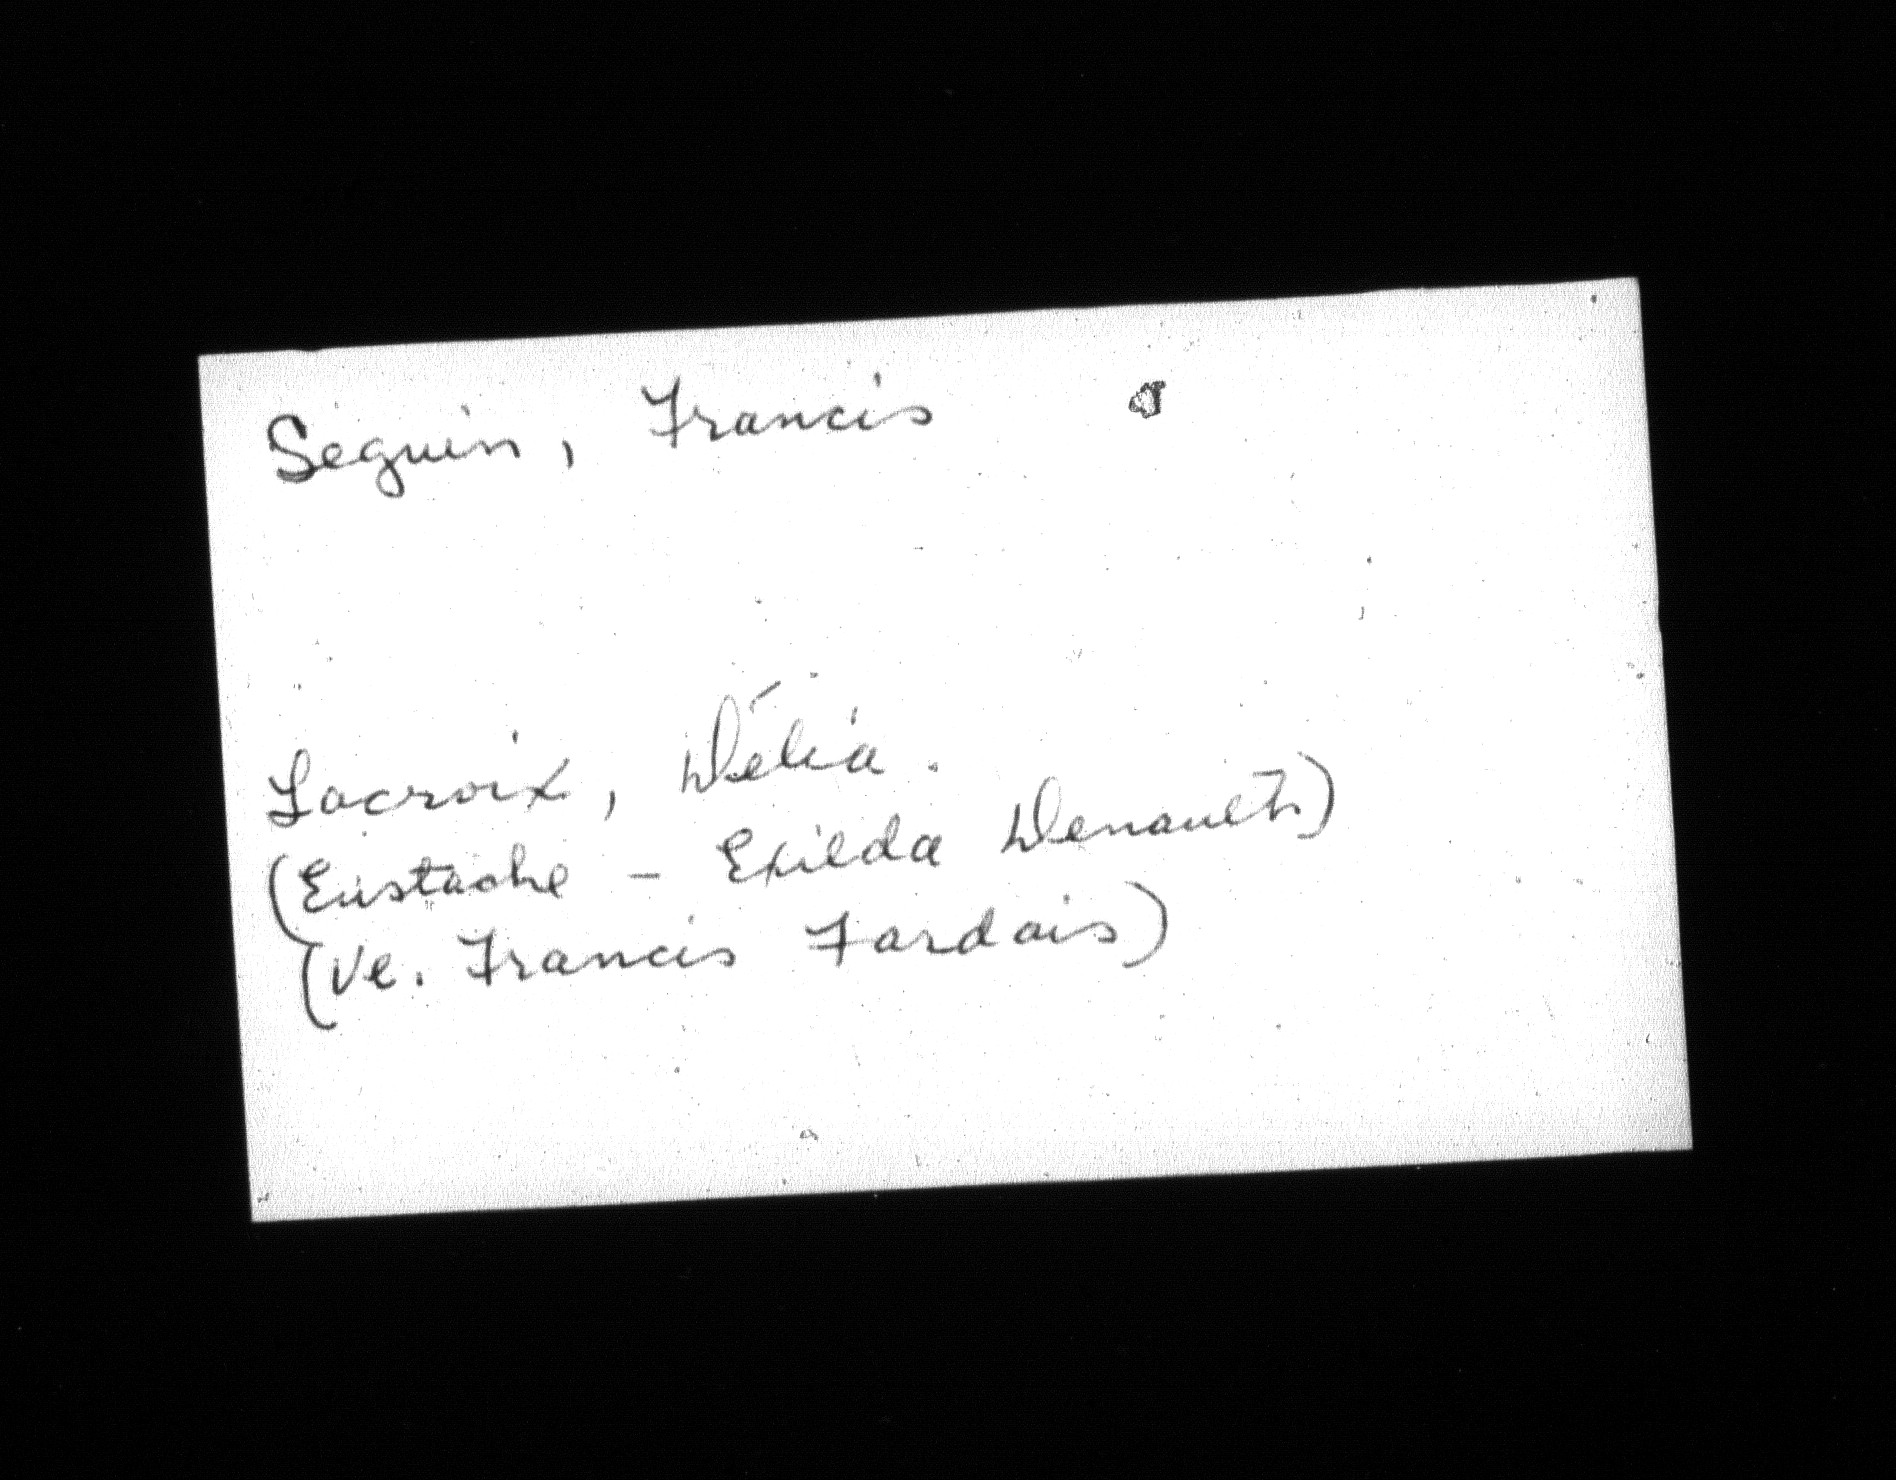 Seguin, Francis
Lacroix, Délia.
(Eustache - Exilda Denault)
(Ve. Francis Fardais)